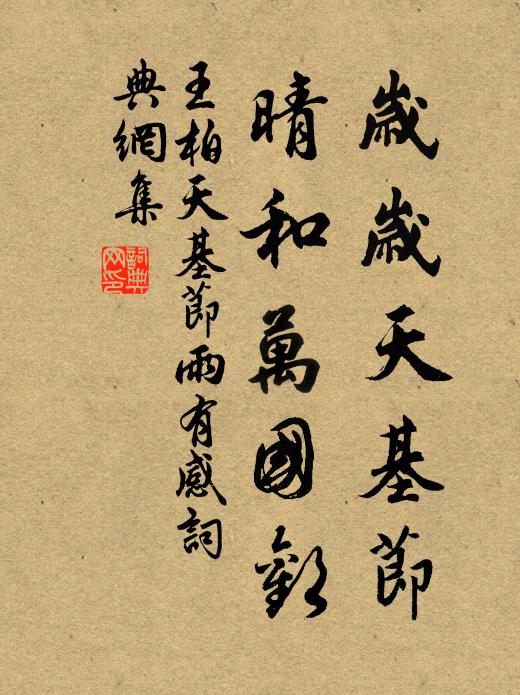 歲歲天基節
晴和萬國歡
王柏天基節雨有感詞
典網集
詞典
网印